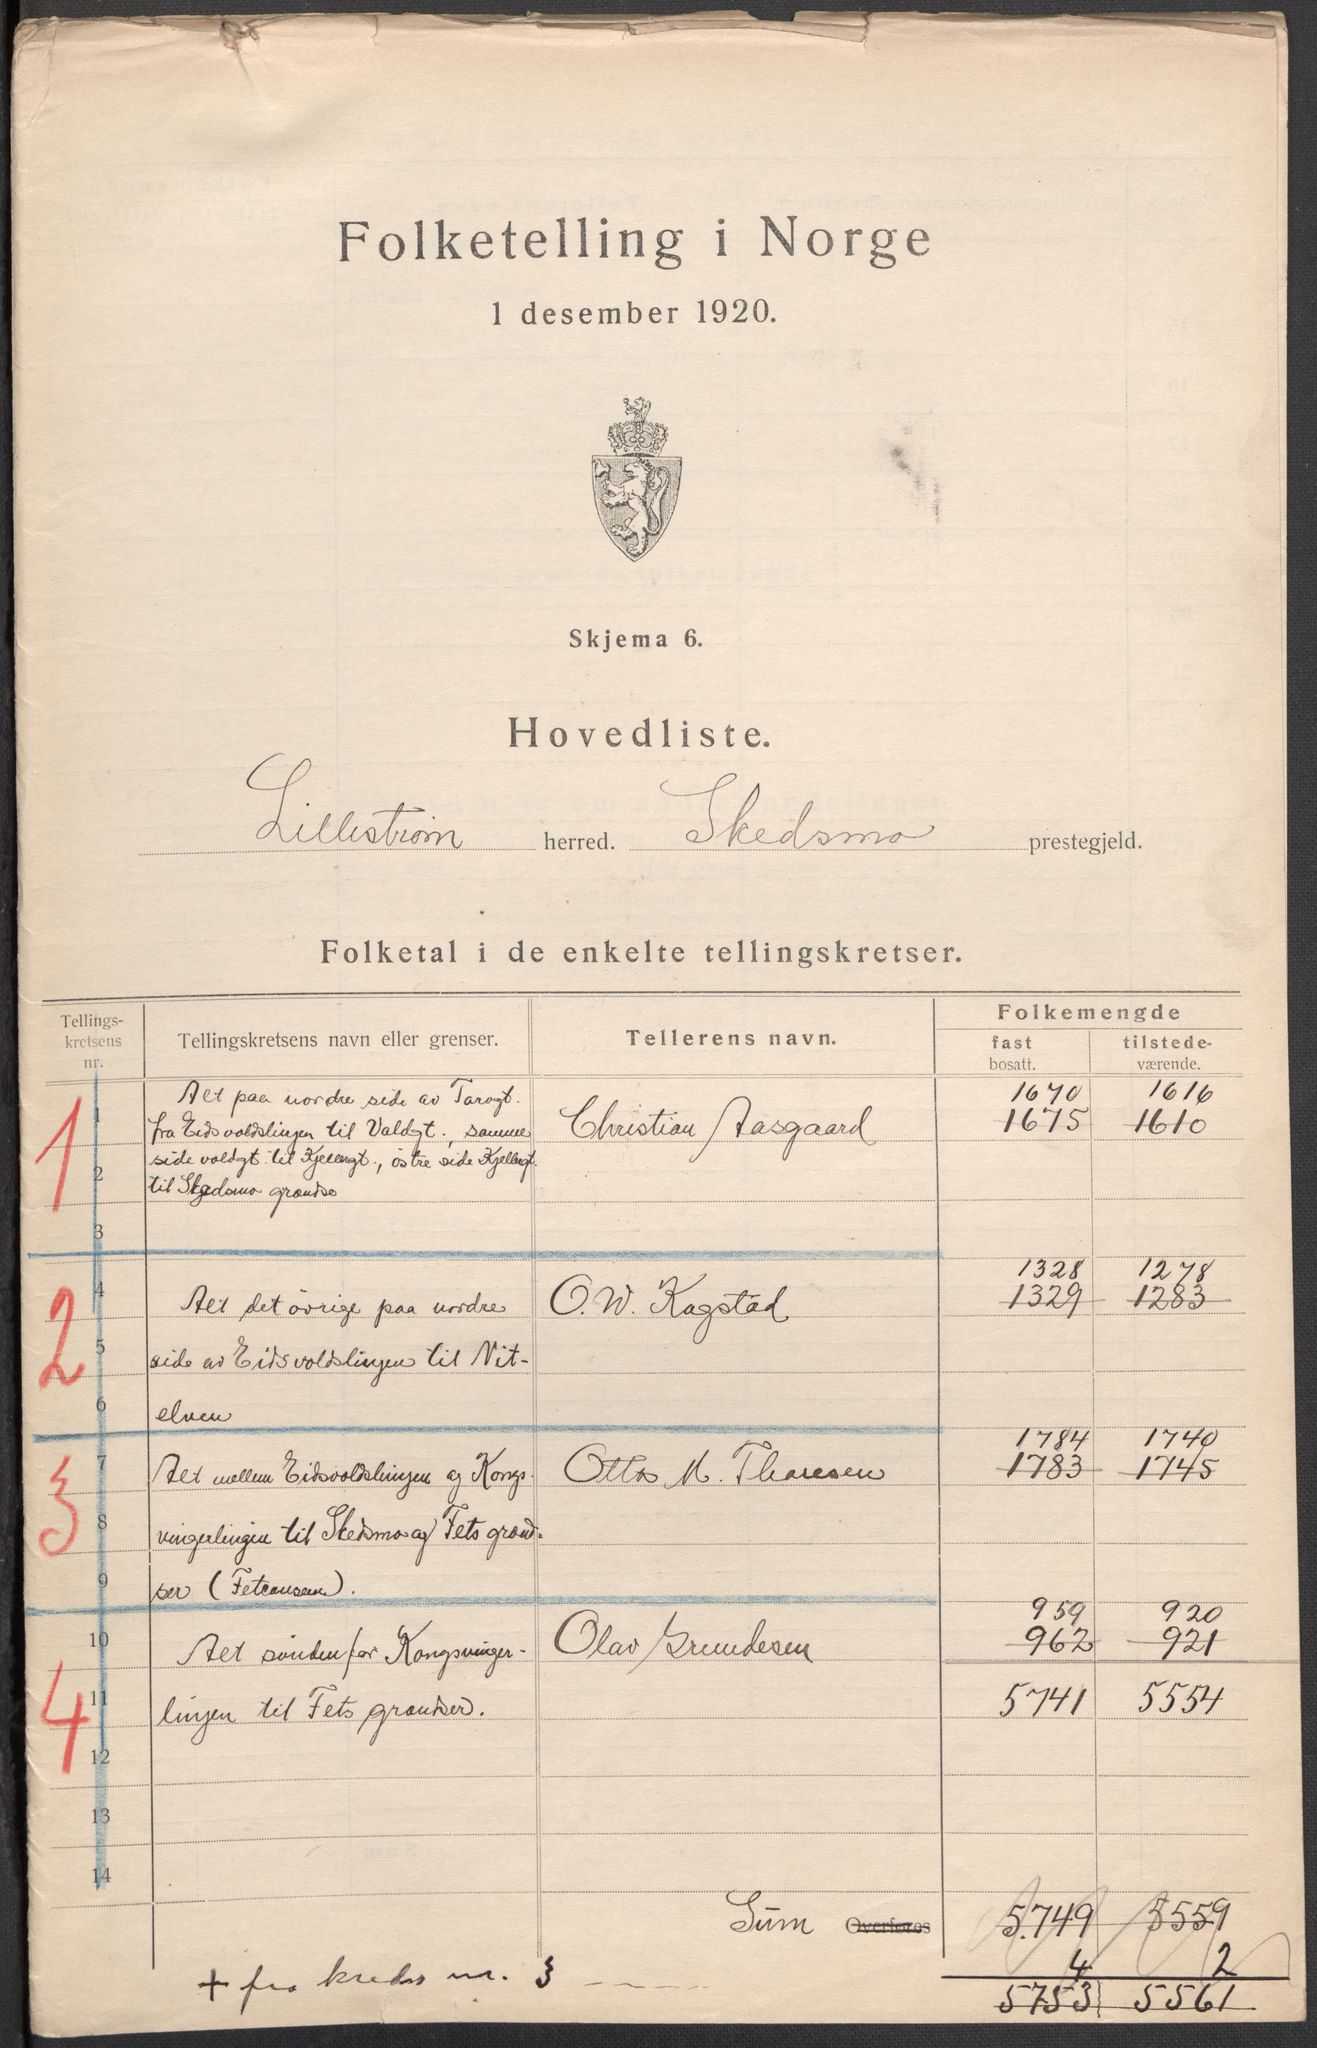 Folketelling i Norge
1 desember 1920.
Skjema 6.
Hovedliste.
Lillestrøm herred. Skedsmo prestegjeld.
Folketal i de enkelte tellingskretser.
Tellings-
kretsens
nr.
Tellingskretsens navn eller grenser.
Tellerens navn.
Folkemengde
fast
bosatt.
tilstede-
værende.
1
1
Alt paa nordre side av Torvgt.
1670 1616
fra Eidsvoldslinjen til Voldgt., samme
Christian Aasgaard
1675 1610
2
side voldgt til Kjellergt., østre side Kjellergt.
til Skedsmo grændse
3
2
4
1328 1278
Alt det övrige paa nordre
O. W. Kagstad
1329 1283
5
side av Eidsvoldslinjen til Nit-
6
elven
3
7
1784 1740
Alt mellem Eidsvoldslinjen og Kongs-
1783 1745
8
vingerlinjen til Skedsmo og Fets grænd-
9
ser (
).
4
959 920
10
Alt sönden for Kongsvinger-
Olav
962 921
11
linjen til Fets grændser.
5741 5554
12
13
14
Sum Overføres
5749 5559
+ fra kreds nr. 3
4 2
5753 5561